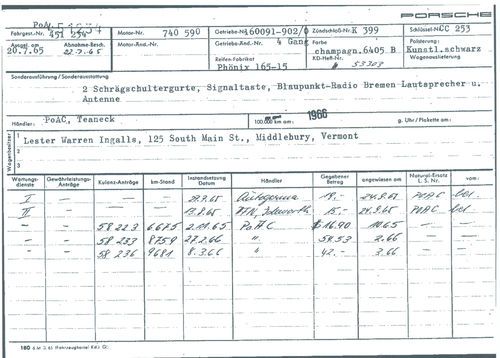 PoA
PORSCHE
Fahrgest.-Nr. 451 254 Motor-Nr. 740 590 Getriebe-Nr. 160091-902/0 Zündschloß-Nr. K 399 Schlüssel-Nr. CC 253
Ausgel. am 20.7.65 Abnahme-Besch. 22.7.65 Motor-Änd.-Nr. Getriebe-Änd.-Nr. 4 Gang Farbe champagn.6405 B Polsterung: Kunstl.schwarz
Reifen-Fabrikat Phönix 165-15 KD-Heft-Nr. 53303 Wagenauslieferung
Sonderausführung / Sonderausstattung
2 Schrägschultergurte, Signaltaste, Blaupunkt-Radio Bremen Lautsprecher u.
Antenne
Händler: PoAC, Teaneck 100.000 km am: 1966 g. Uhr / Plakette am:
Wagenbesitzer
1 Lester Warren Ingalls, 125 South Main St., Middlebury, Vermont
2
3
Wartungs-dienste Gewährleistungs-Anträge Kulanz-Anträge km-Stand Instandsetzung Datum Händler Gegebener Betrag angewiesen am Natural-Ersatz L. S. Nr.
I — — — Autogerma 18.- 24.9.65 POAC
II — — — 15.- 24.9.65 POAC
- — 58 223 6685 2.11.65 PoAC $ 16.90 10.65 — —
- — 58 233 8759 27.2.66 " 54.53 2.66 — —
- — 58 236 9681 8.3.66 " 42.- 3.66 — —
180